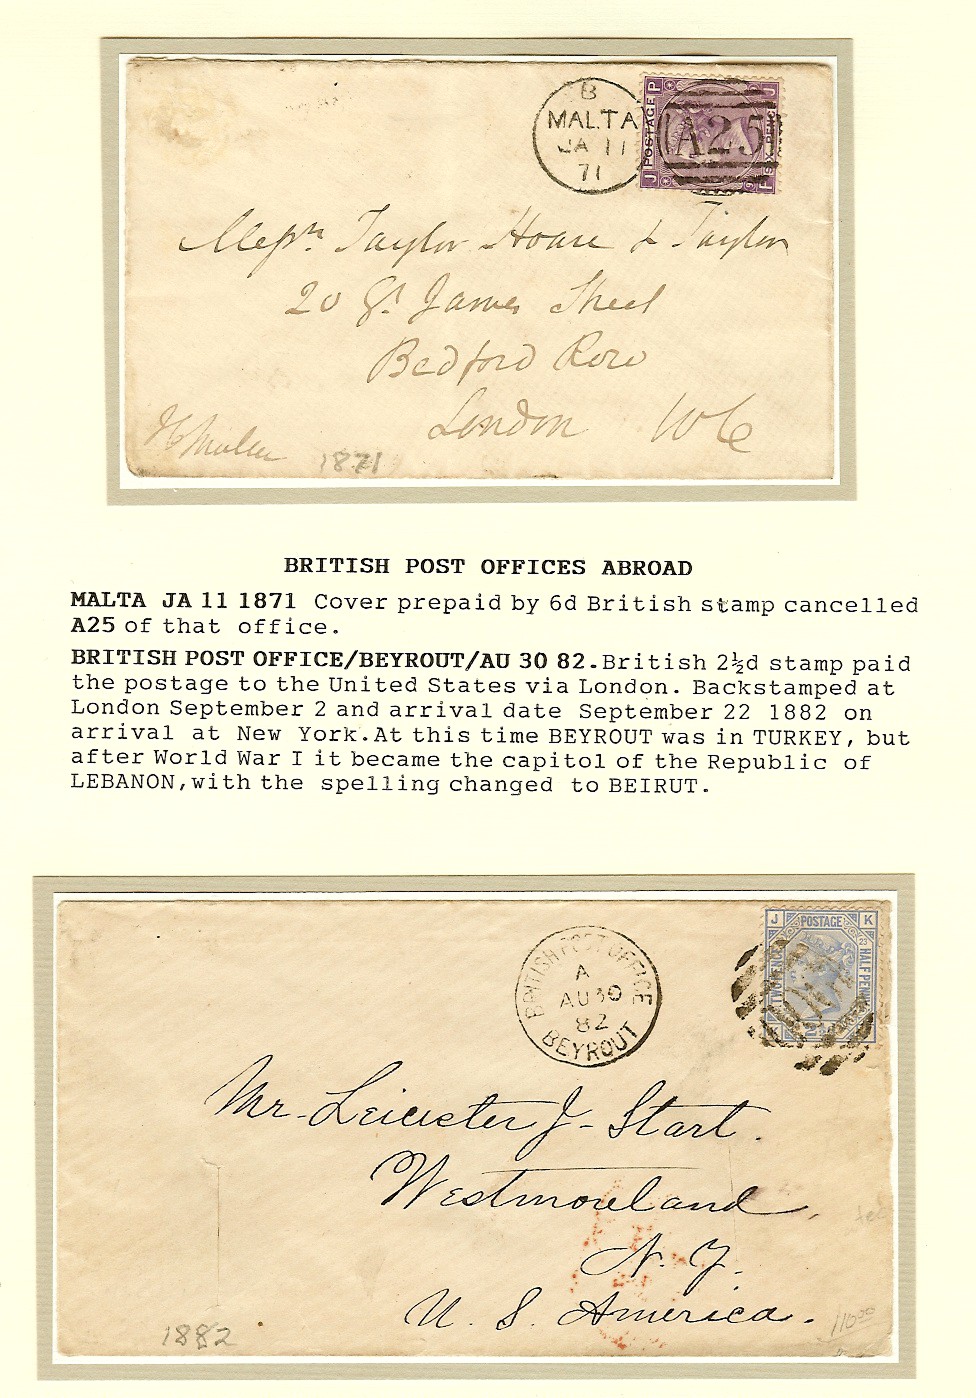 B
MALTA
JA 11
71
J POSTAGE P
A25
J SIX PENCE F
Messrs Taylor Hoare & Taylor
20 Gt. James Street
Bedford Row
London WC
1871
BRITISH POST OFFICES ABROAD
MALTA JA 11 1871 Cover prepaid by 6d British stamp cancelled
A25 of that office.
BRITISH POST OFFICE/BEYROUT/AU 30 82.British 2½d stamp paid
the postage to the United States via London. Backstamped at
London September 2 and arrival date September 22 1882 on
arrival at New York.At this time BEYROUT was in TURKEY, but
after World War I it became the capitol of the Republic of
LEBANON,with the spelling changed to BEIRUT.
J POSTAGE K
23
TWO PENCE HALF PENNY
BRITISH POST OFFICE
A
AU 30
82
BEYROUT
Mr. Leicester J. Start.
Westmoreland,
N. Y.
U. S. America.
1882
110.00